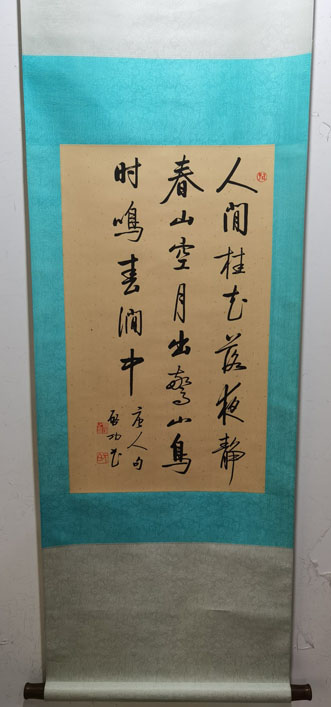 人间桂花落夜静
春山空月出惊山鸟
时鸣春涧中
唐人句
启功书